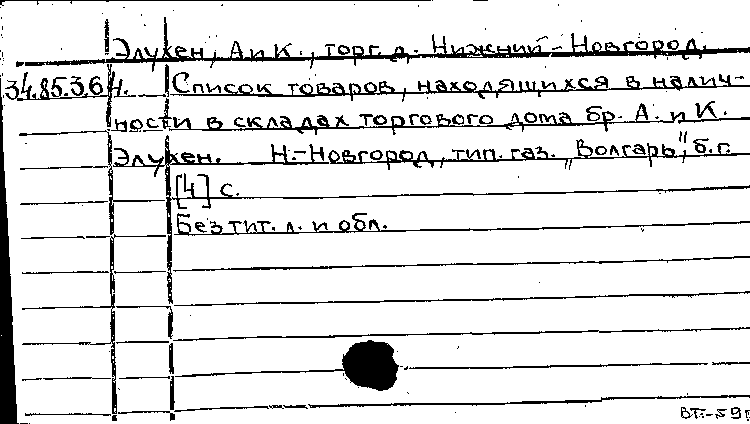 Элукен, А и К., торг. д. Нижний-Новгород.
34.85.364. Список товаров, находящихся в налич-
ности в складах торгового дома бр. А. и К.
Элукен. Н.-Новгород, тип. газ. „Волгарь", б.г.
[4] с.
Без тит. л. и обл.